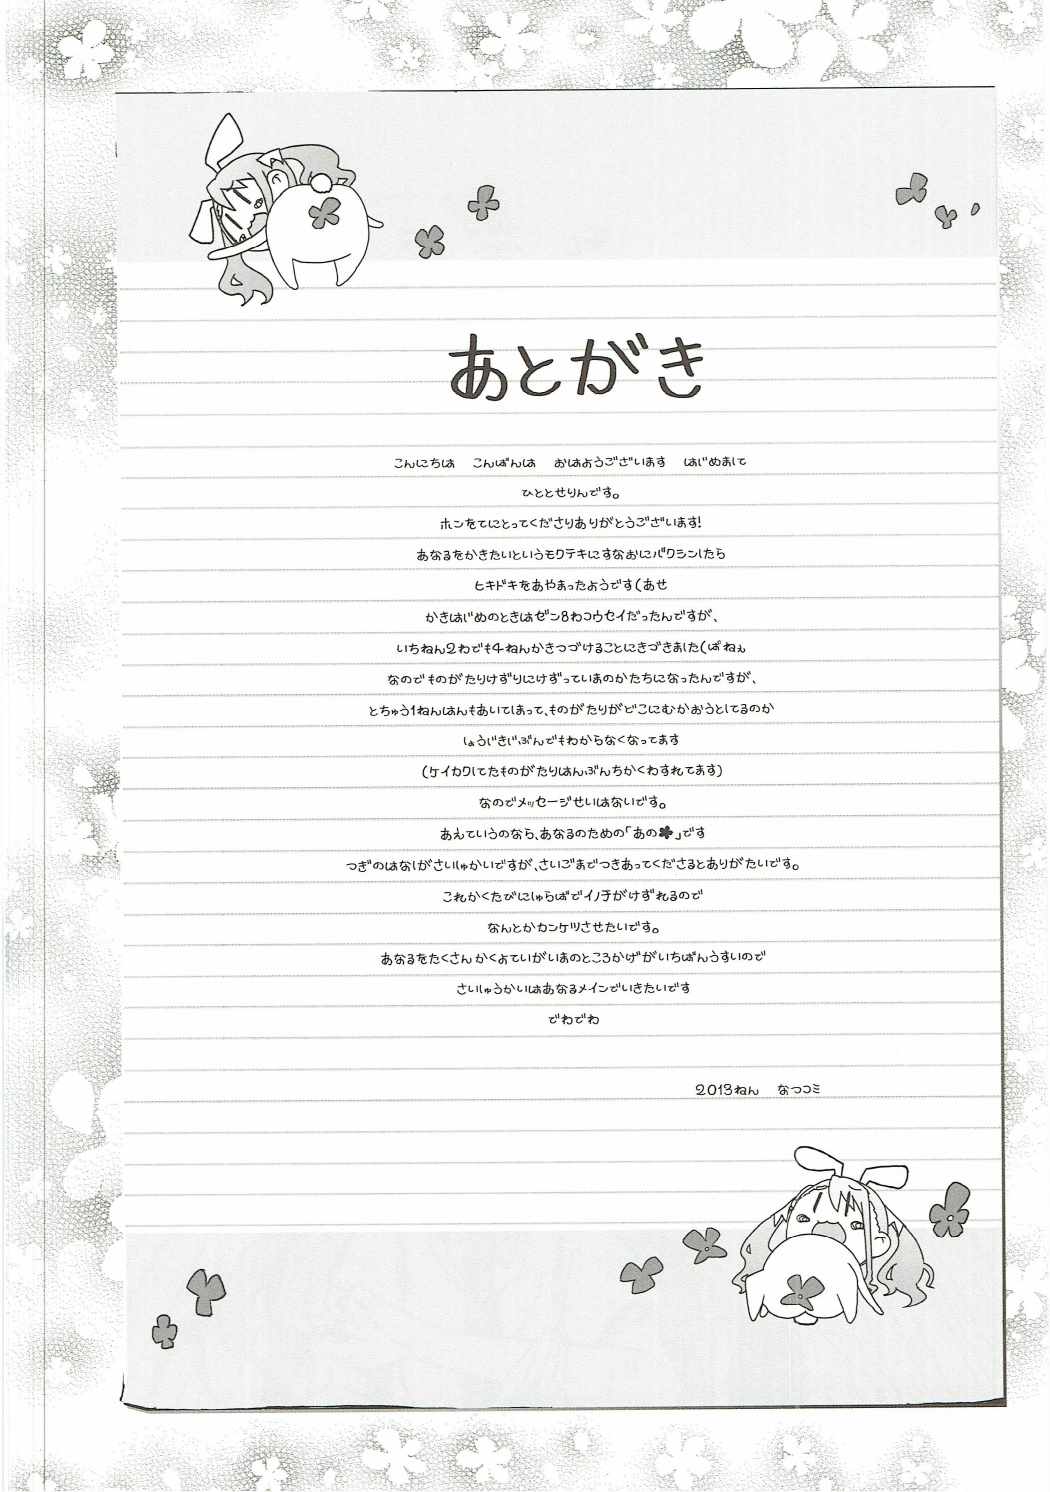 あとがき
こんにちは こんばんは おはようございます はじめまして
ひととせりんです。
ホンをてにとってくださりありがとうございます!
あなるをかきたいというモクテキにすなおにバクシンしたら
ヒキドキをあやまったようです(あせ
かきはじめのときはゼン8わコウセイだったんですが、
いちねん2わでも4ねんかきつづけることにきづきました(ぱねぇ
なのでものがたりけずりにけずっていまのかたちになったんですが、
とちゅう1ねんはんもあいてしまって、ものがたりがどこにむかおうとしてるのか
しょうじきじぶんでもわからなくなってます
(ケイカクしてたものがたりはんぶんちかくわすれてます)
なのでメッセージせいはないです。
あえていうのなら、あなるのための「あの✤」です
つぎのはなしがさいしゅかいですが、さいごまでつきあってくださるとありがたいです。
これかくたびにしゅらばでイノチがけずれるので
なんとかカンケツさせたいです。
あなるをたくさんかくよていがいまのところかげがいちばんうすいので
さいしゅうかいはあなるメインでいきたいです
でわでわ
2013ねん なつコミ